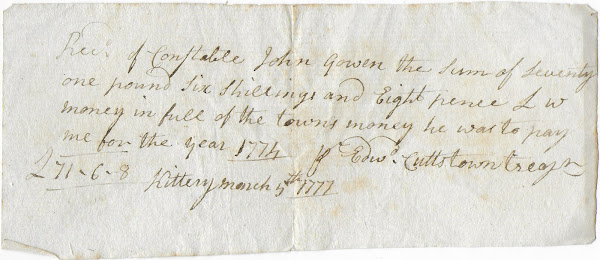 Recd of Constable John Gowen the Sum of Seventy
one pound Six Shillings and Eight pence L w
money in full of the towns money he was to pay
me for the year 1774 pr Edwd Cutts town treasr
£ 71-6-8 Kittery march 5th 1777